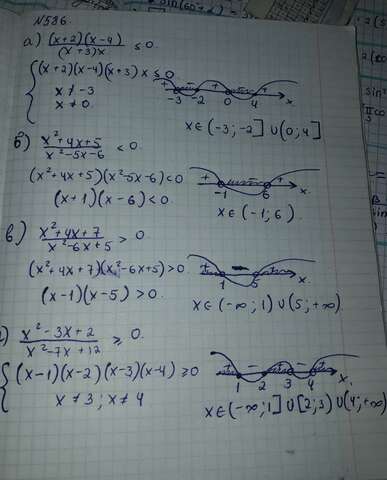 N586.
а) (x+2)(x-4)/(x+3)x ≤ 0.
{(x+2)(x-4)(x+3)x ≤ 0
x ≠ -3
x ≠ 0.
+ - + - +
-3 -2 0 4 x
x∈(-3;-2]∪(0;4]
б) x²+4x+5/x²-5x-6 < 0
(x²+4x+5)(x²-5x-6)<0
(x+1)(x-6)<0.
+ - +
-1 6 x.
x∈(-1;6).
в) x²+4x+7/x²-6x+5 > 0.
(x²+4x+7)(x²-6x+5)>0
(x-1)(x-5)>0.
+ - +
1 5 x.
x∈(-∞;1)∪(5;+∞).
) x²-3x+2/x²-7x+12 ≥ 0.
{(x-1)(x-2)(x-3)(x-4)≥0
x≠3; x≠4
+ - + - +
1 2 3 4 x.
x∈(-∞;1]∪[2;3)∪(4;+∞)